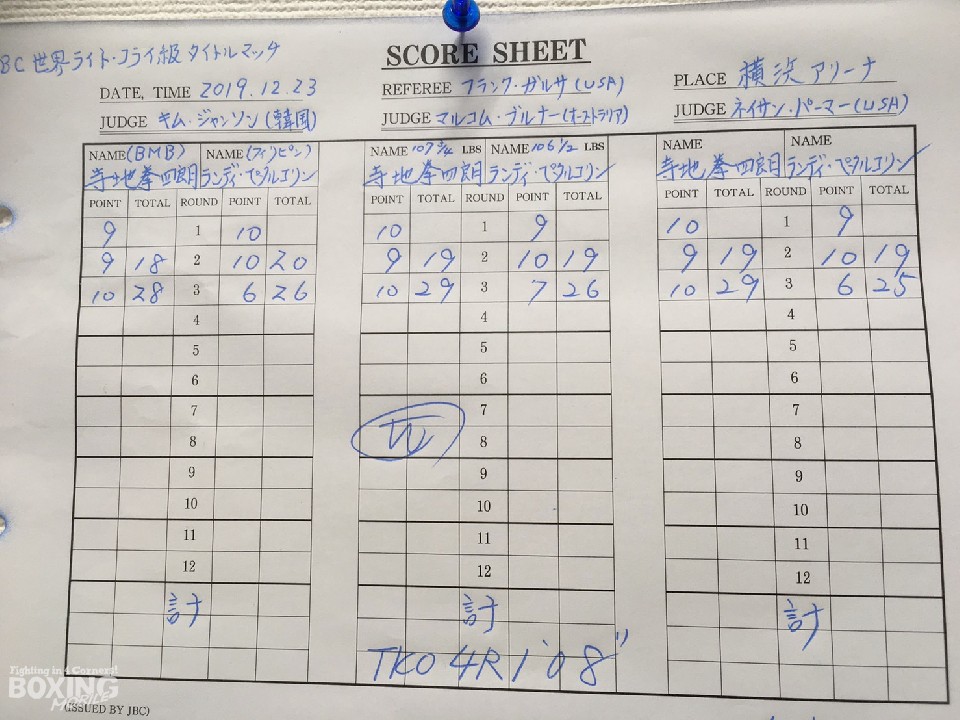 BC 世界ライト・フライ級 タイトルマッチ
SCORE SHEET
DATE, TIME 2019.12.23
REFEREE フランク・ガルサ(USA)
PLACE 横浜アリーナ
JUDGE キム・ジャンソン(韓国)
JUDGE マルコム・ブルナー(オーストラリア)
JUDGE ネイサン・パーマー(USA)
NAME(BMB) NAME(フィリピン) NAME 107 3/4 LBS NAME 106 1/2 LBS NAME NAME
寺地拳四朗 ランディ・ペタルコリン 寺地拳四朗 ランディ・ペタルコリン 寺地拳四朗 ランディ・ペタルコリン
POINT TOTAL ROUND POINT TOTAL POINT TOTAL ROUND POINT TOTAL POINT TOTAL ROUND POINT TOTAL
9 1 10 10 1 9 10 1 9
9 18 2 10 20 9 19 2 10 19 9 19 2 10 19
10 28 3 6 26 10 29 3 7 26 10 29 3 6 25
4 4 4
5 5 5
6 6 6
7 7 7
8 W 8 8
9 9 9
10 10 10
11 11 11
12 12 12
計 計 計
TKO 4R 1'08"
Fighting in 4 Corners!
BOXING
MOBILE
(ISSUED BY JBC)